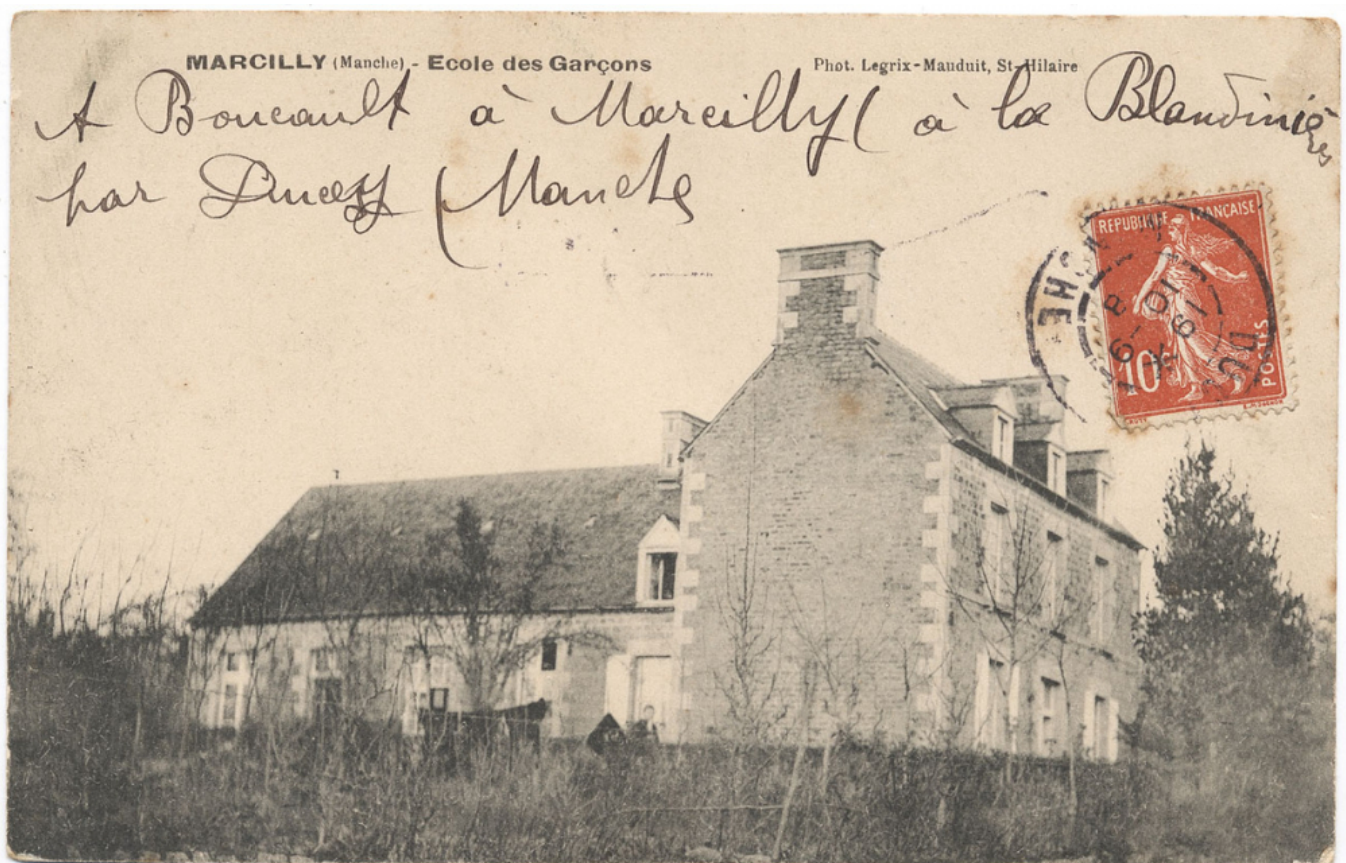 MARCILLY (Manche) - Ecole des Garçons
Phot. Legrix-Mauduit, St-Hilaire
A Boucault à Marcilly (à la Blandinière
par Ducey (Manche
REPUBLIQUE FRANÇAISE
10
POSTES